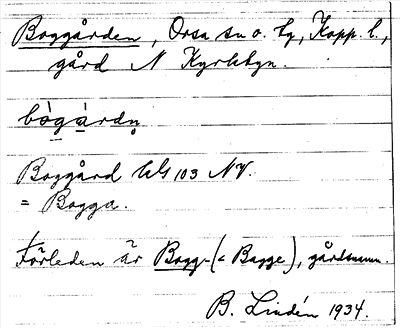 Boggården, Orsa sn o. tg, Kopp. l.,
gård N Kyrkbyn.
bògàrdn̥
Boggård GS 103 NV.
= Bogga.
Förleden är Bogg- (< Bagge), gårdsnamn.
B. Lindén 1934.